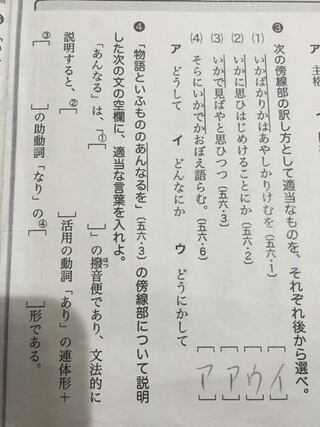 ア 主格
❸ 次の傍線部の訳し方として適当なものを、それぞれ後から選べ。
(1) いかばかりかはあやしかりけむを(五六・1) [イ]
(2) いかに思ひはじめけることにか(五六・2) [ウ]
(3) いかで見ばやと思ひつつ(五六・3) [ア]
(4) そらにいかでかおぼえ語らむ。(五六・6) [ア]
ア どうして イ どんなにか ウ どうにかして
❹ 「物語といふもののあんなるを」(五六・3)の傍線部について説明
した次の文の空欄に、適当な言葉を入れよ。
「あんなる」は、「①[ ]」の撥音便であり、文法的に
はつ
説明すると、②[ ]活用の動詞「あり」の連体形+
③[ ]の助動詞「なり」の④[ ]形である。